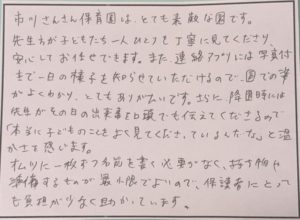 市川さんさん保育園は、とても素敵な園です。
先生方が子どもたち一人ひとりを丁寧に見てくださり、
安心してお任せできます。また、連絡アプリには写真付
きで一日の様子を知らせていただけるので、園での事
がよくわかり、とてもありがたいです。さらに、降園時には
先生がその日の出来事を口頭でも伝えてくださるので
「本当に子どものことをよく見てくださっているんだな」と温
かさを感じます。
オムツに一枚ずつ名前を書く必要がなく、持ち物や
準備するものが最小限でよいので、保護者にとって
も負担が少なく助かっています。